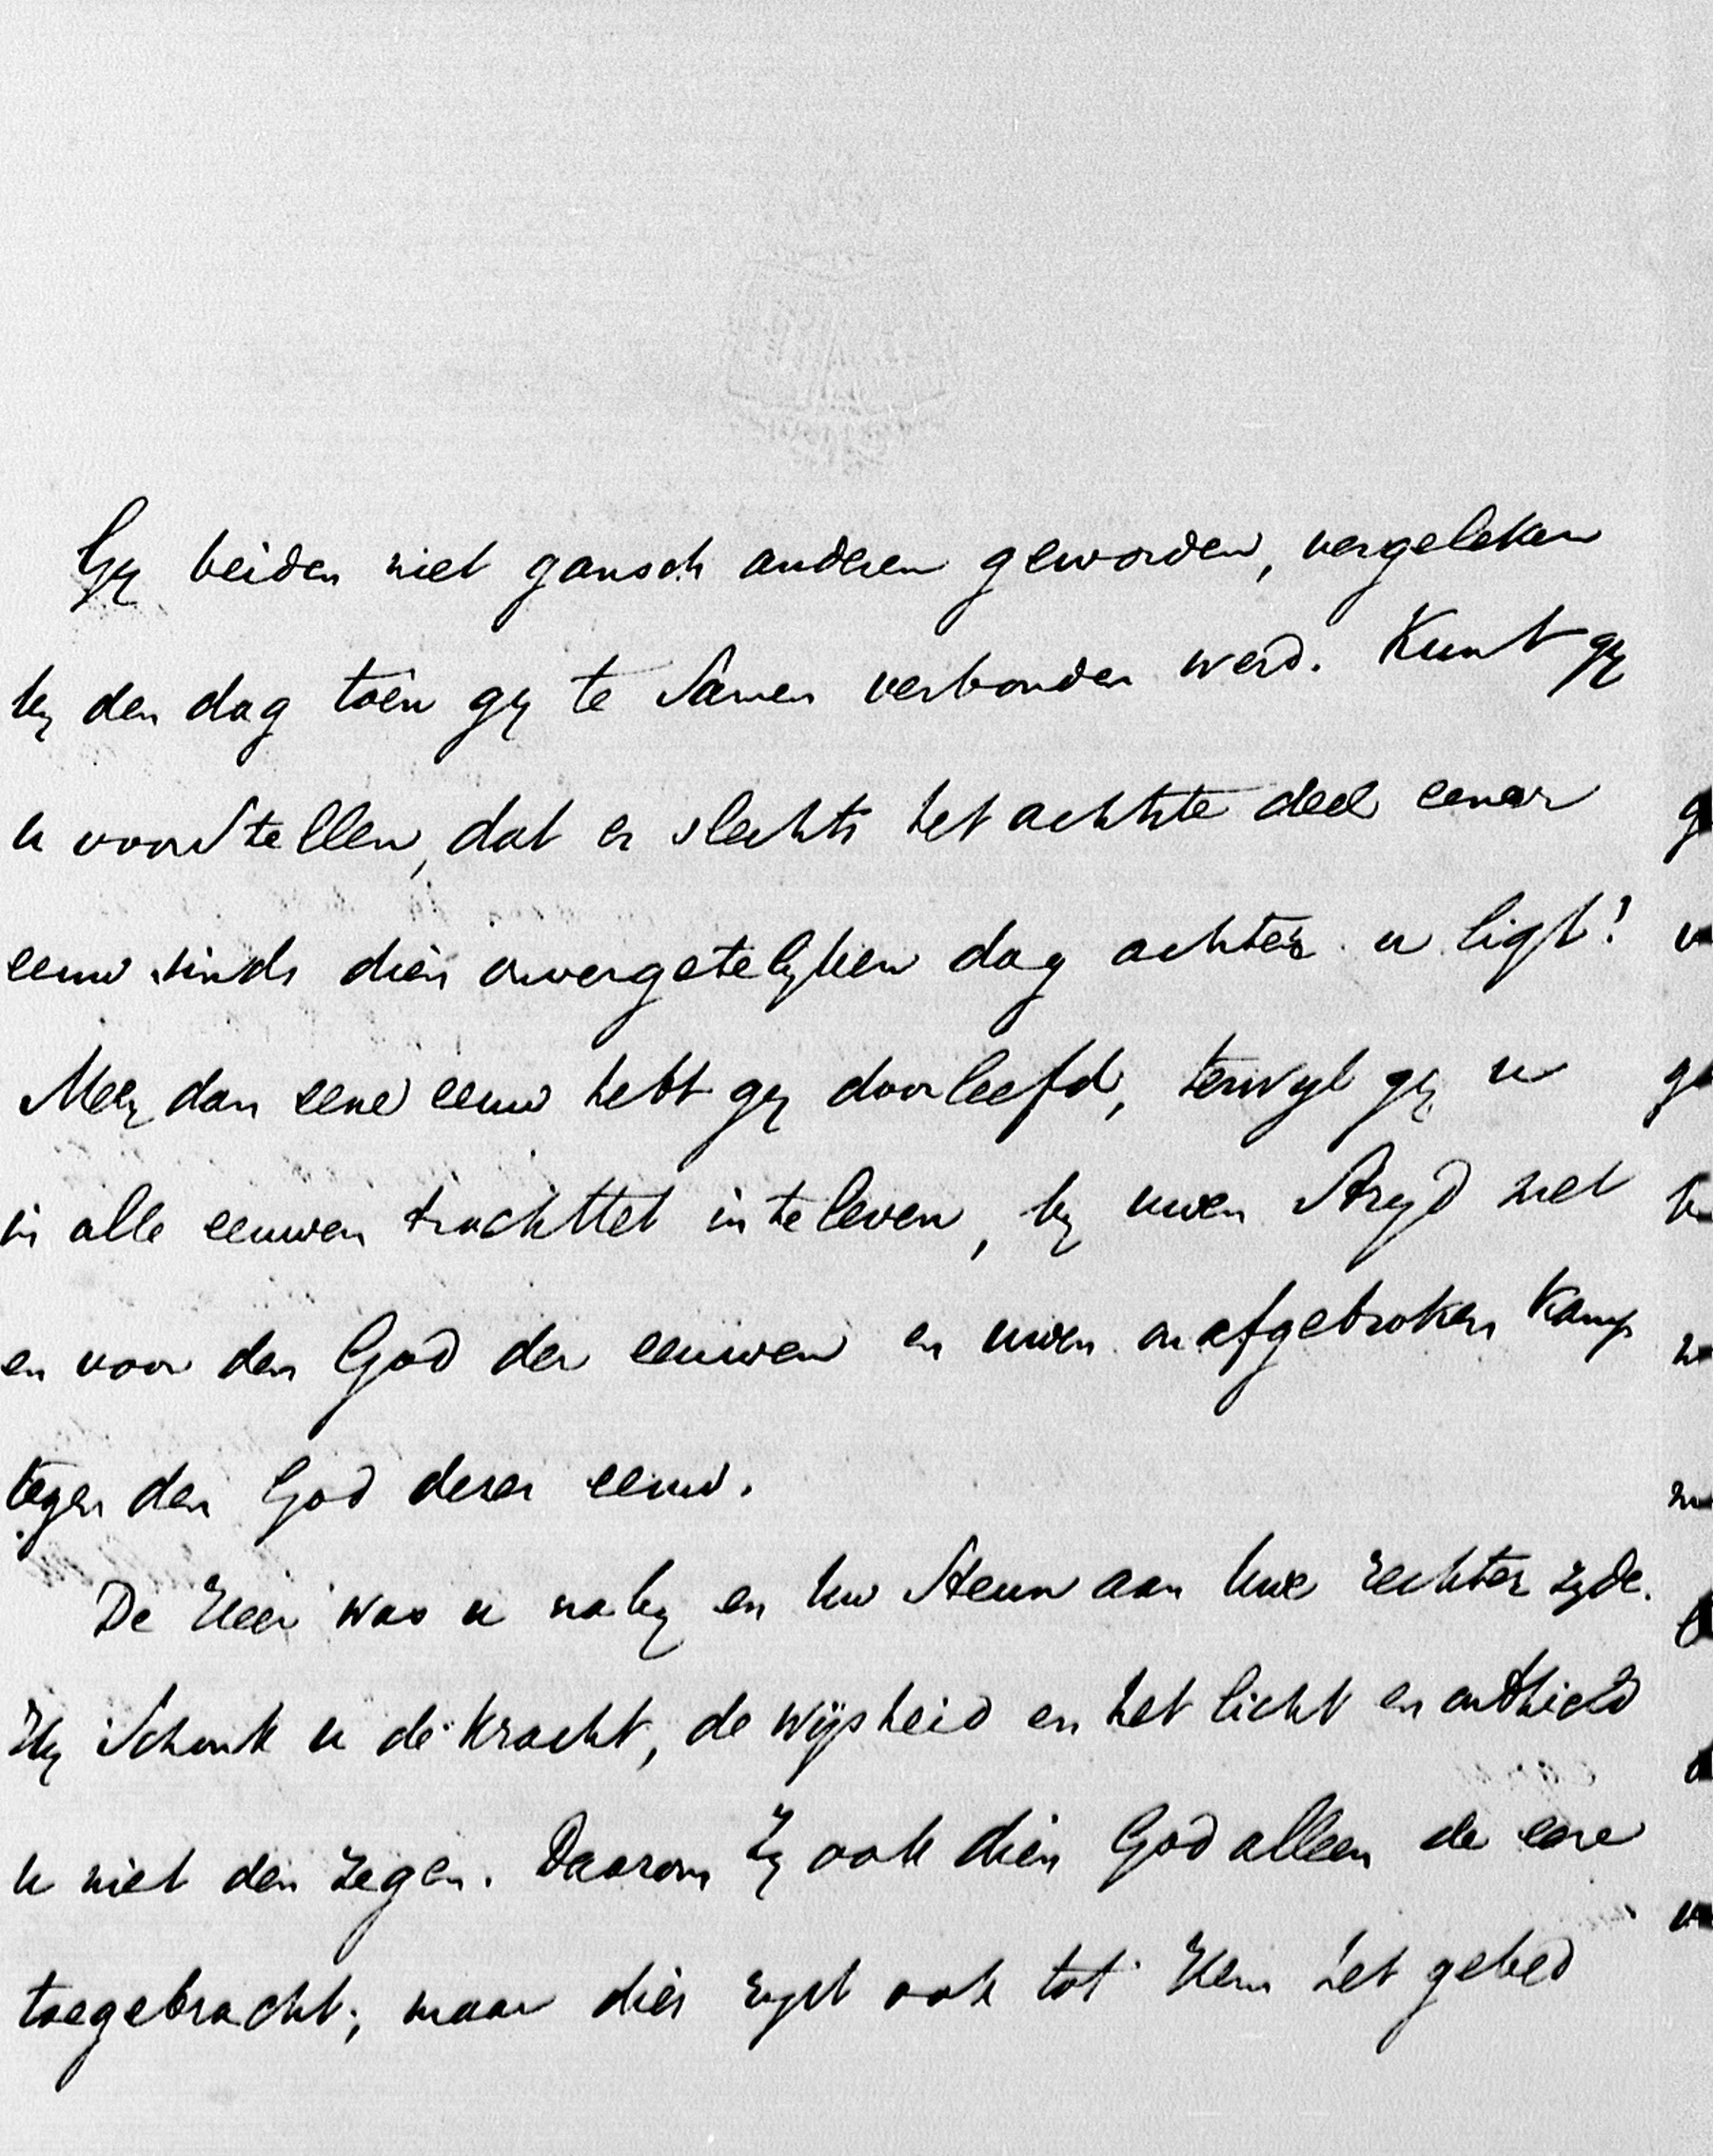 Gij beiden niet gansch anderen geworden, vergeleken
bij den dag toen gij te Samen verbonden werd. Kunt gij
u voorstellen, dat er slechts het achtste deel eener
eeuw sinds dien onvergetelijken dag achter u ligt!
Meer dan eene eeuw hebt gij doorleefd, terwijl gij u
in alle eeuwen trachttet in te leven, bij uwen Strijd met
en voor den God der eeuwen en uwen onafgebroken Kamp
tegen den God dezer eeuw.
De Heer was u nabij en Uw Steun aan Uwe rechter zijde.
Hij Schonk u de kracht, de wijsheid en het licht en onthield
u niet den zegen. Daarom Zij ook dien God alleen de eere
toegebracht; maar dies rijst ook tot Hem het gebed